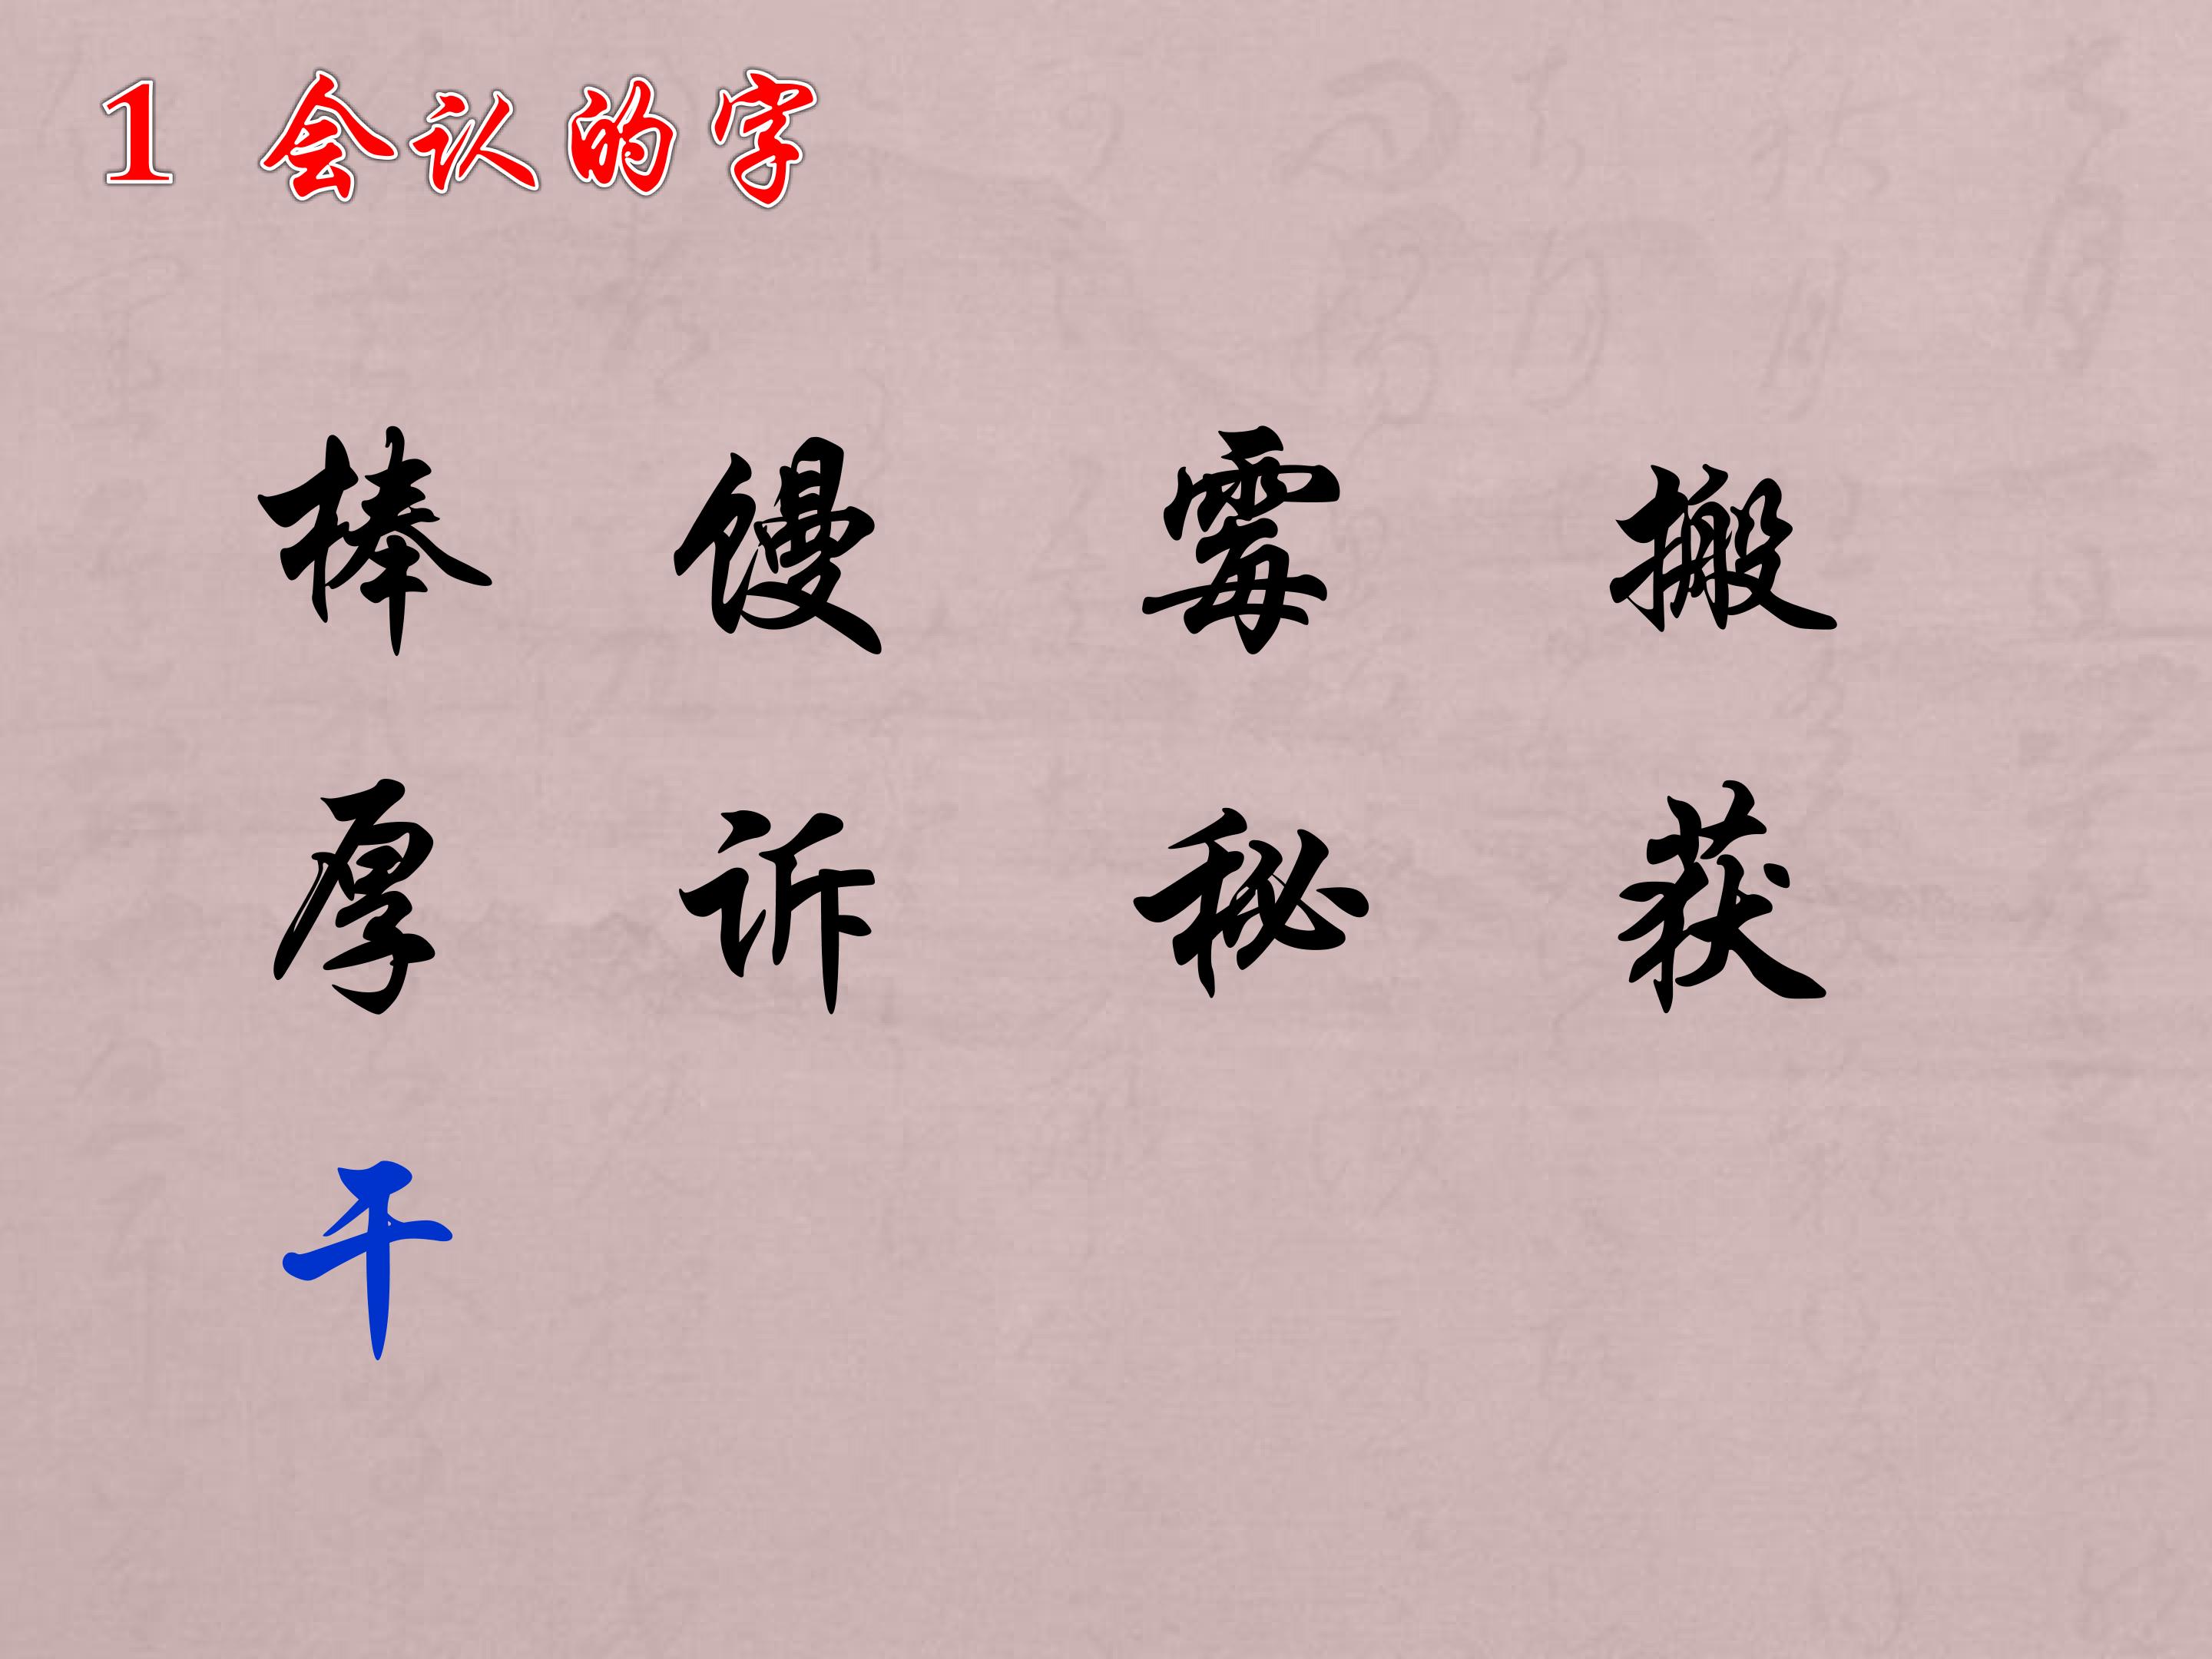 1 会认的字
棒 馒 霉 搬
厚 诉 秘 获
干